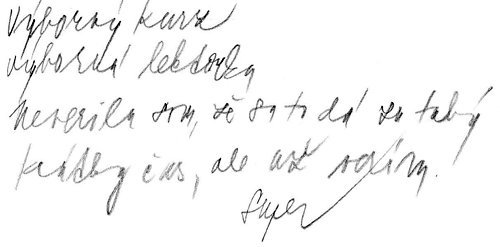 Výborný kurz
výborná lektorka
neverila som, že sa to dá za taký
krátky čas, ale už vidím!
Super